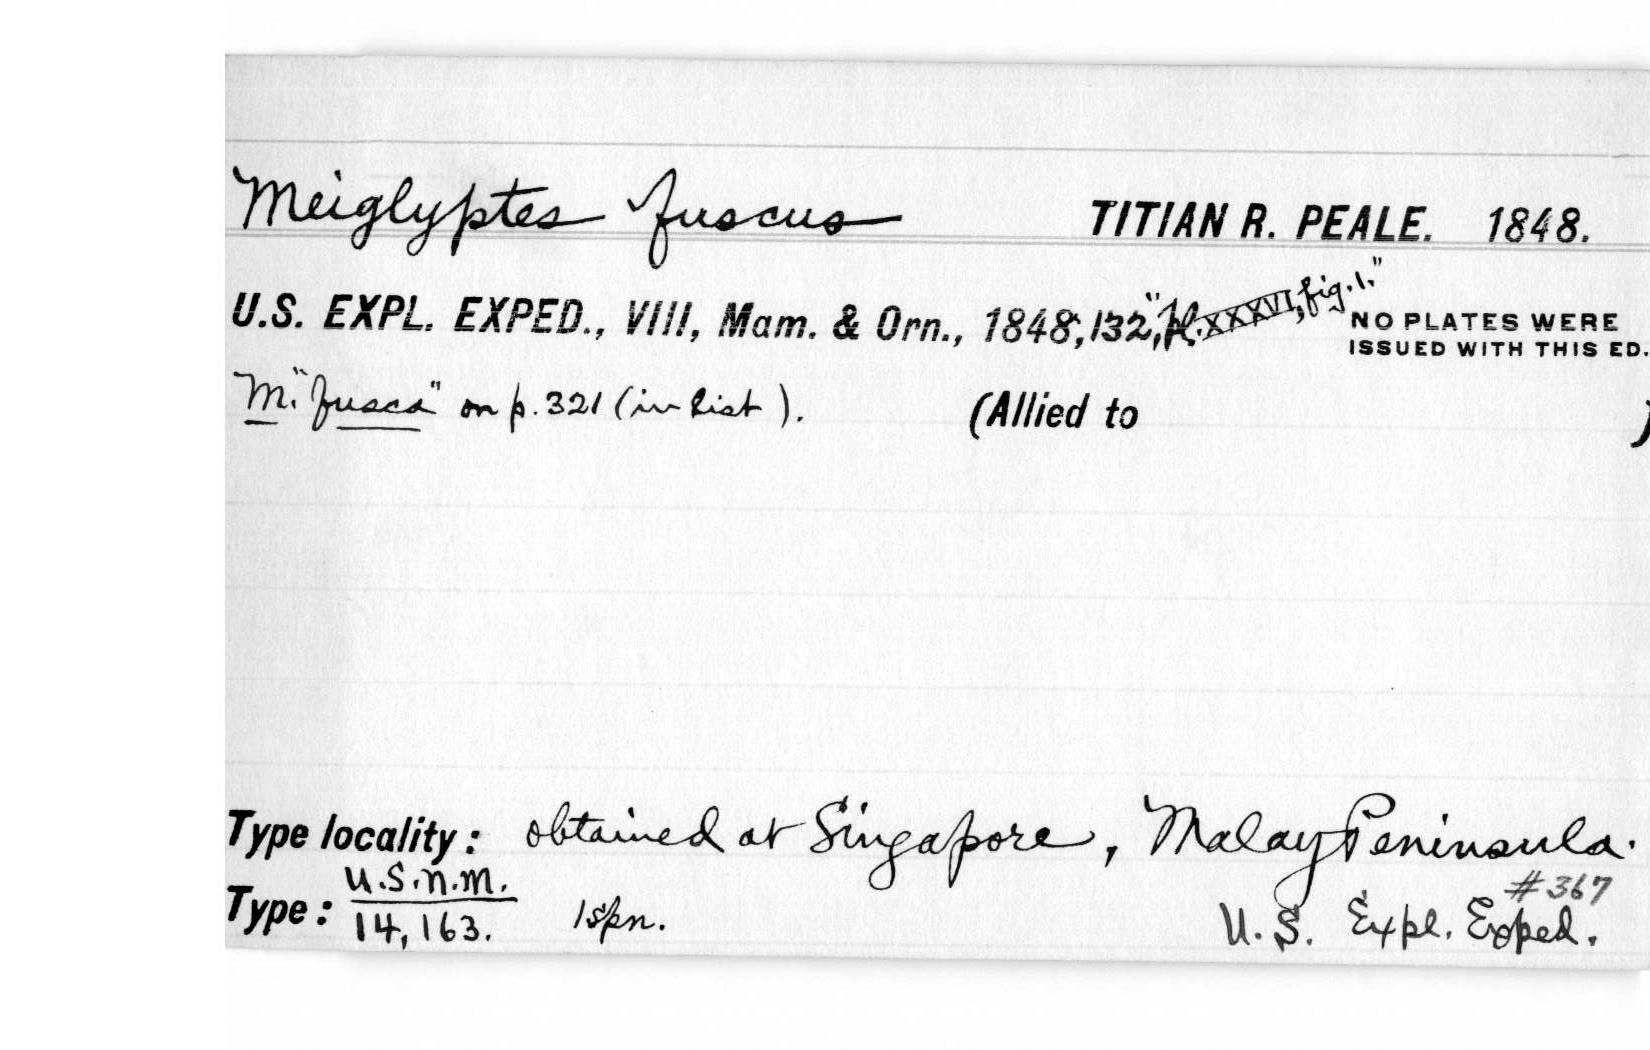 Meiglyptes fuscus TITIAN R. PEALE. 1848.
U.S. EXPL. EXPED., VIII, Mam. & Orn., 1848, 132, "pl. XXXVI, fig. 1." NO PLATES WERE
ISSUED WITH THIS ED.
M. "fusca" on p. 321 (in list). (Allied to )
Type locality: obtained at Singapore, Malay Peninsula.
U.S.N.M. #367
Type: 14,163. 1 spn. U.S. Expl. Exped.